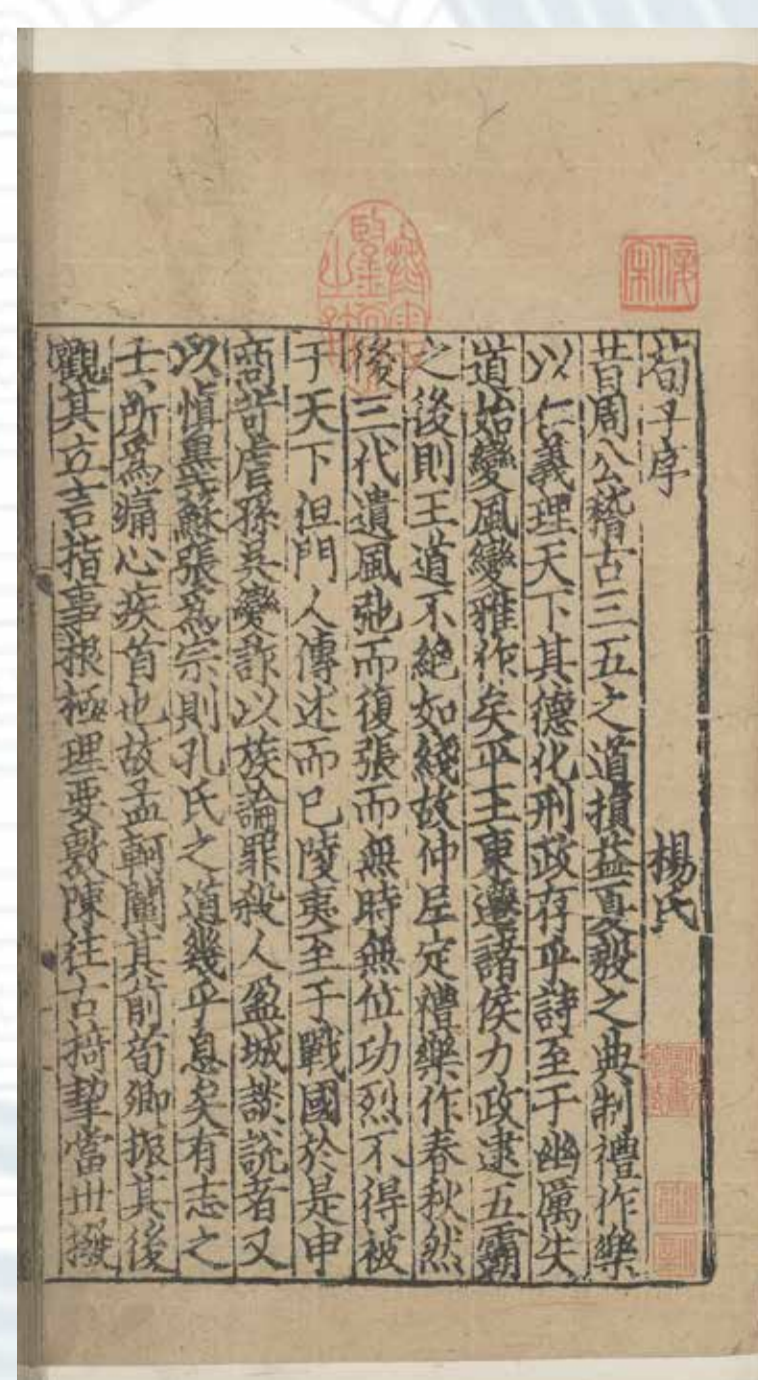 荀子序
楊氏
昔周公稽古三五之道損益夏殷之典制禮作樂
以仁義理天下其德化刑政存乎詩至于幽厲失
道始變風變雅作矣平王東遷諸侯力政逮五霸
之後則王道不絕如綫故仲尼定禮樂作春秋然
後三代遺風弛而復張而無時無位功烈不得被
于天下但門人傳述而已陵夷至于戰國於是申
商苛虐孫吳變詐以族論罪殺人盈城談說者又
以慎墨蘇張爲宗則孔氏之道幾乎息矣有志之
士所爲痛心疾首也故孟軻闢其前荀卿振其後
觀其立言指事根極理要敷陳往古掎挈當世撥